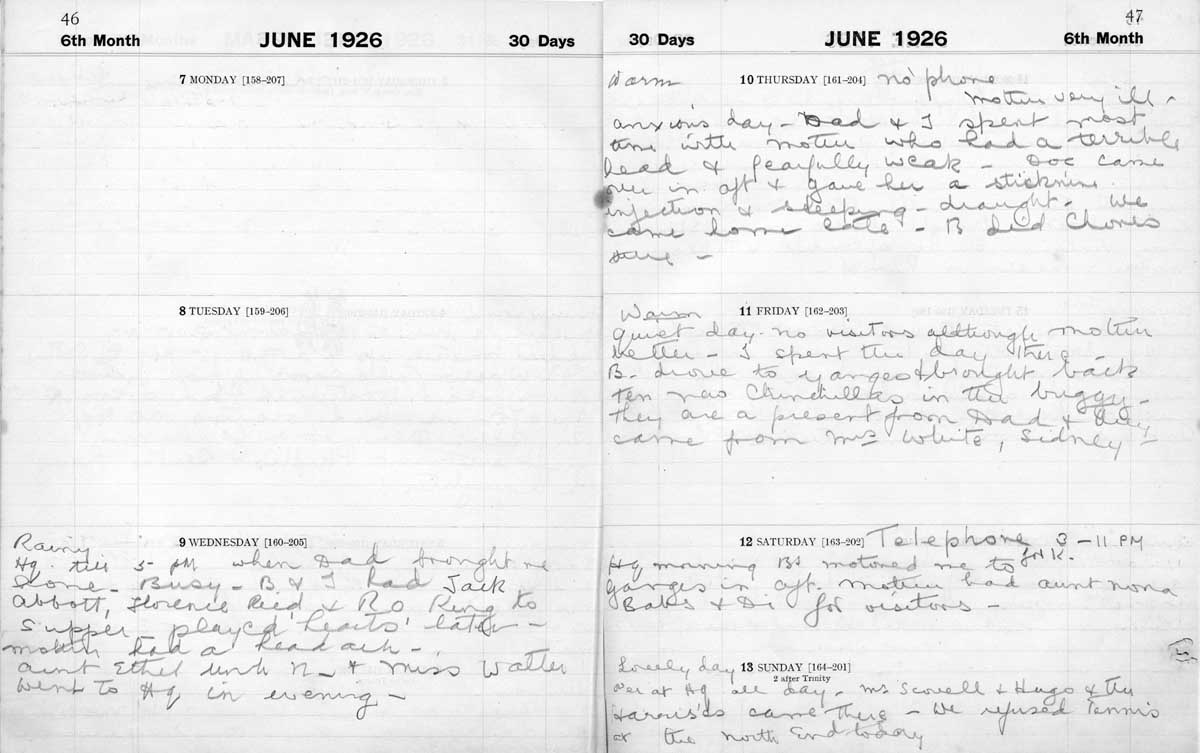 46
6th Month JUNE 1926 30 Days
7 MONDAY [158-207]
8 TUESDAY [159-206]
9 WEDNESDAY [160-205]
Rainy
Hq. till 5 PM when Dad brought me
home - Busy - B. & I had Jack
Abbott, Florence Reid & Ro King to
Supper played 'hearts' later -
mother had a headach -
aunt Ethel Unk N - & Miss Walter
went to Hq in evening -
47
30 Days JUNE 1926 6th Month
10 THURSDAY [161-204] no 'phone
Warm
mother very ill -
anxious day - Dad & I spent most
time with mother who had a terrible
head & fearfully weak - Doc came
over in aft & gave her a
injection & sleeping - draught - We
came home late - B did Chores
11 FRIDAY [162-203]
Warm
quiet day - no visitors aldthough mother
better - I spent the day there -
B. drove to Ganges & brought back
ten nao Chinchillas in the buggy -
they are a present from Dad & they
came from Mrs White, Sidney -
12 SATURDAY [163-202] Telephone 3 - 11 PM
for K.
Hq morning B. motored me to
Ganges in aft. mother had aunt nona
Babs & Di for visitors -
13 SUNDAY [164-201]
2 after Trinity
Lovely day
over at Hq all day - Mrs Scovell & Hugo & the
Harris'ds came there - We refused Tennis
at the north End today